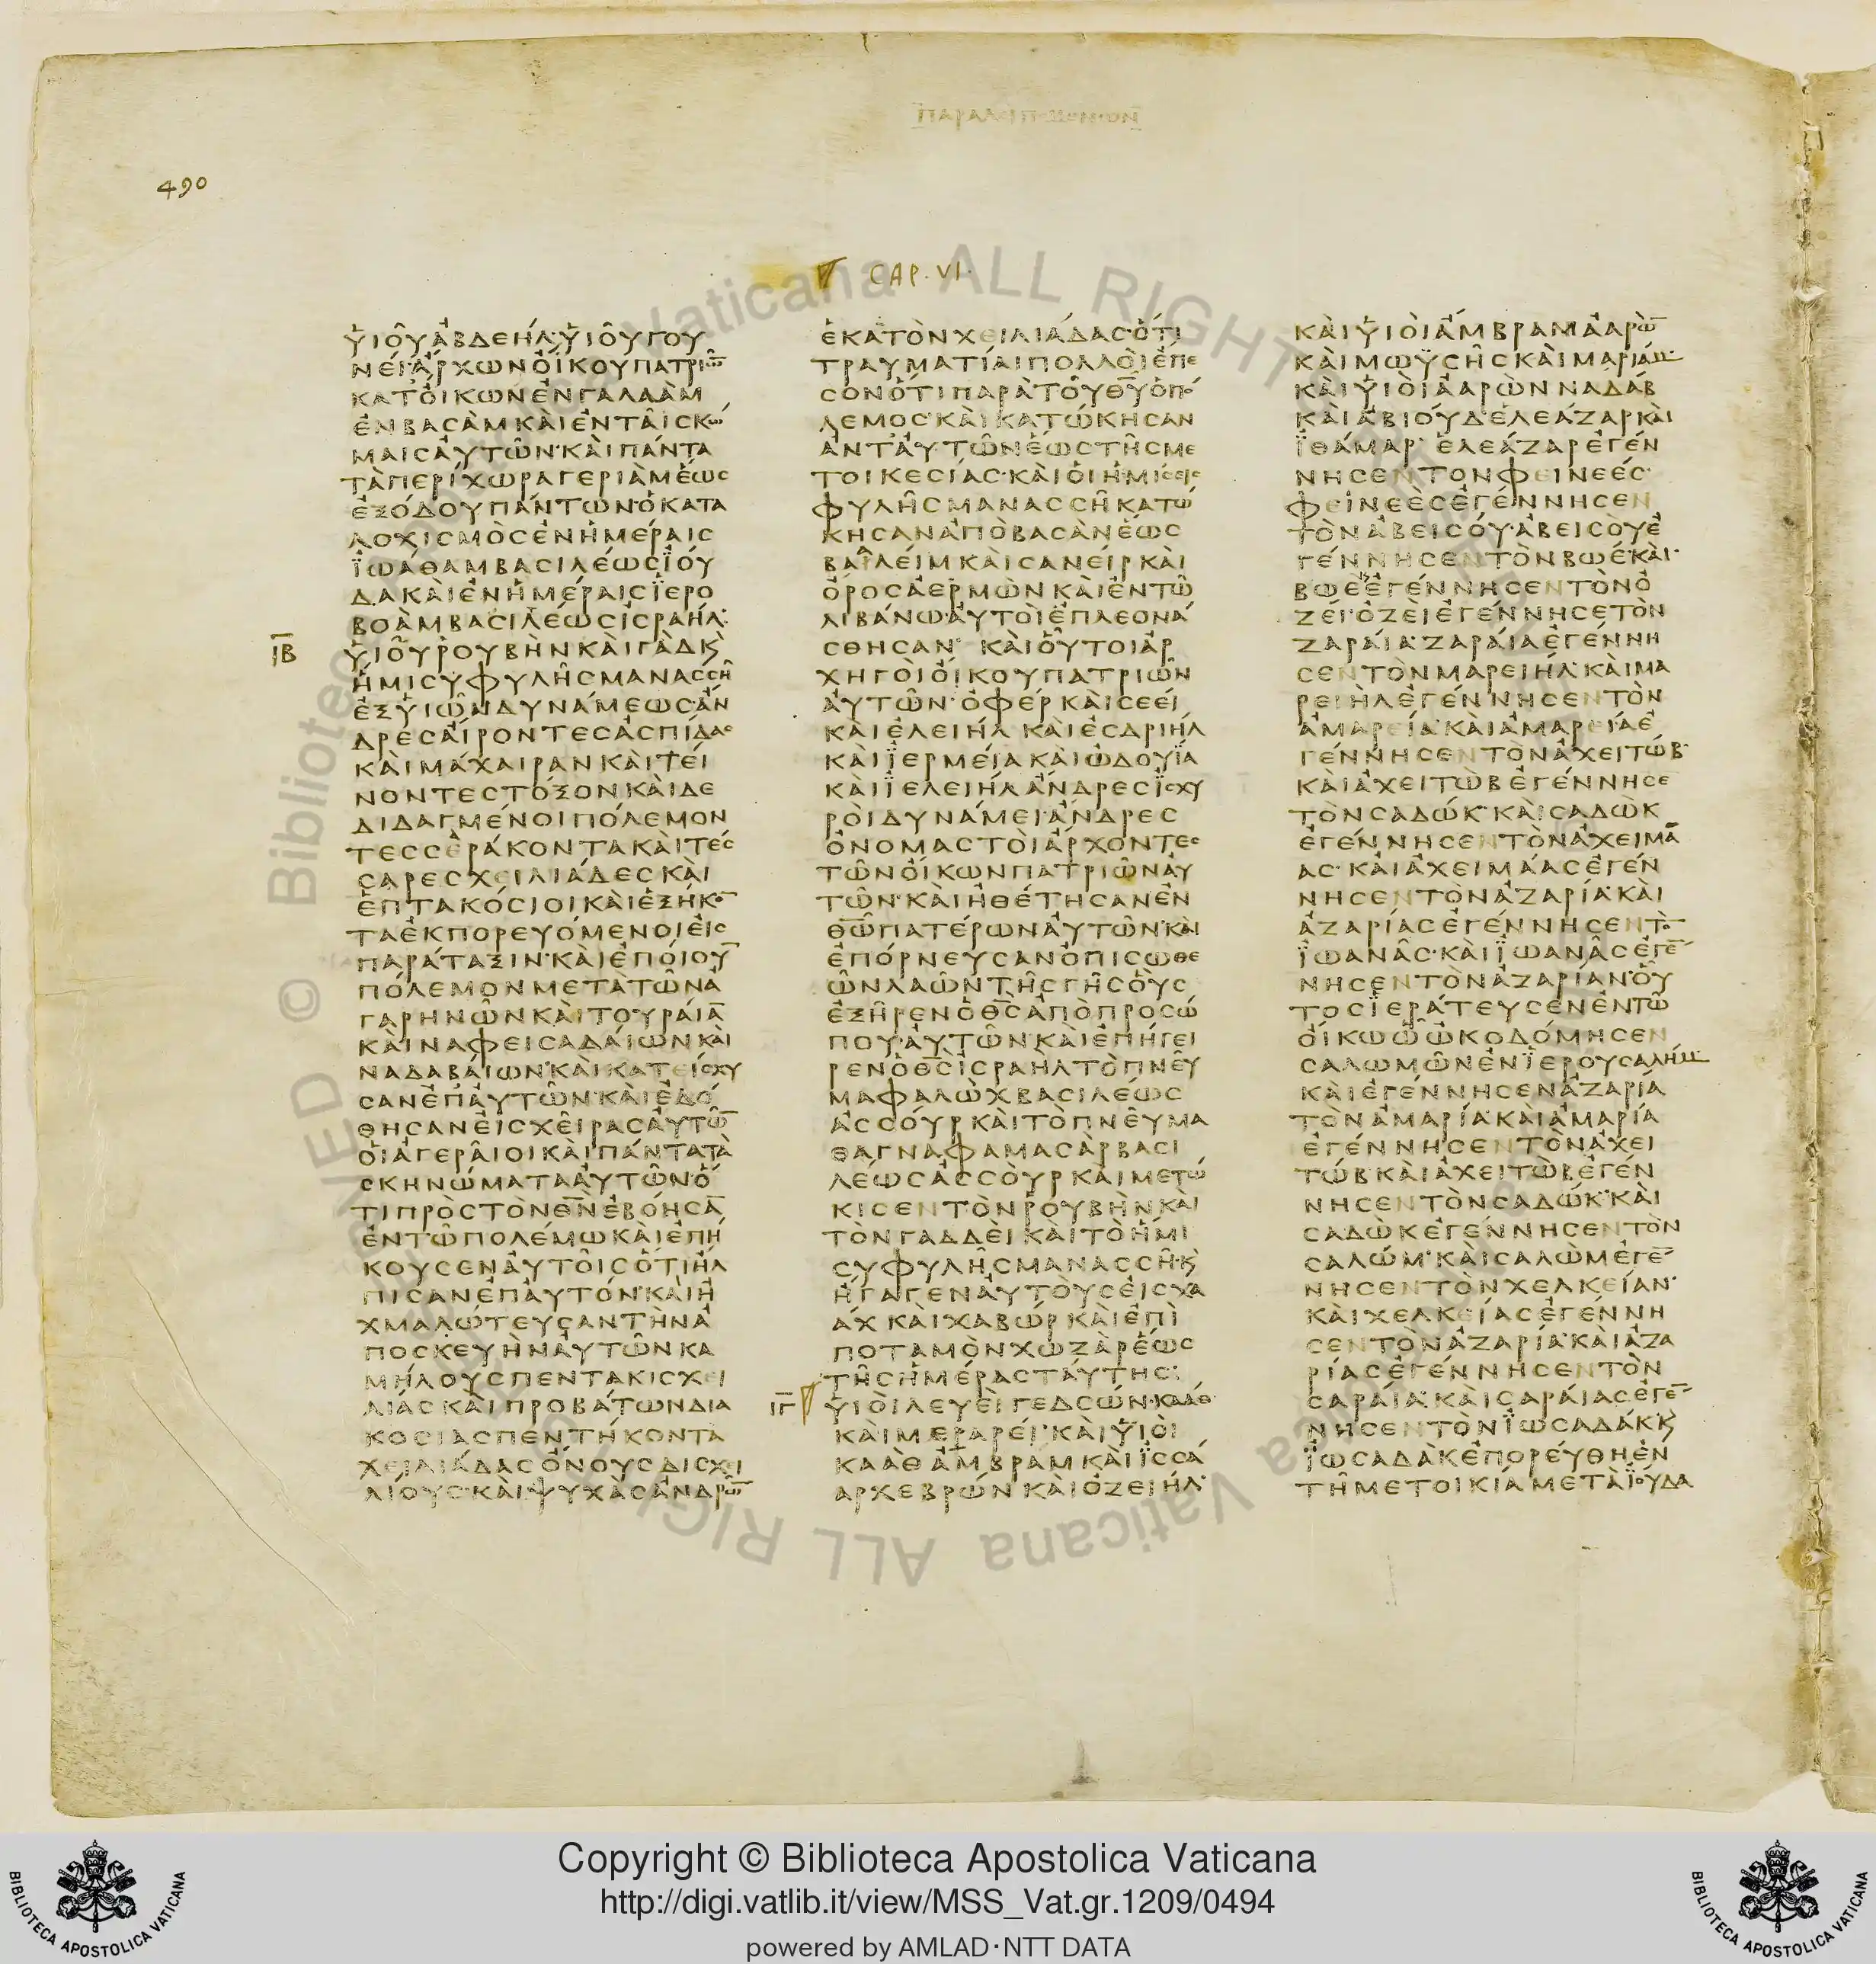 ΠΑΡΑΛΕΙΠΟΜΕΝΩΝ
490
CAP. VI.
ὙΙΟῦΑΒΔΕΗΛ·ὙΙΟῦΓΟΥ
ΝΕΙ·ΑΡΧΩΝΟΙΚΟΥΠΑΤΡΙΩ̅
ΚΑΤΟΙΚΩΝΕΝΓΑΛΑΑΜ
ΕΝΒΑΣΑΜΚΑΙΕΝΤΑΙΣΚΩ
ΜΑΙΣΑΥΤΩΝ·ΚΑΙΠΑΝΤΑ
ΤΑΠΕΡΙΧΩΡΑΓΕΡΙΑΜΕΩΣ
ΕΞΟΔΟΥΠΑΝΤΩΝ·ΟΚΑΤΑ
ΛΟΧΙΣΜΟΣΕΝΗΜΕΡΑΙΣ
ΪΩΑΘΑΜΒΑΣΙΛΕΩΣΪΟΥ
ΔΑΚΑΙΕΝΗΜΕΡΑΙΣΪΕΡΟ
ΒΟΑΜΒΑΣΙΛΕΩΣΙΣΡΑΗΛ·
ΙΒ
ΥΙΟΥΡΟΥΒΗΝΚΑΙΓΑΔΚ
ΗΜΙΣΥΦΥΛΗΣΜΑΝΑΣΣΗ
ΕΞΥΙΩΝΔΥΝΑΜΕΩΣ·ΑΝ
ΔΡΕΣΑΙΡΟΝΤΕΣΑΣΠΙΔΑΣ
ΚΑΙΜΑΧΑΙΡΑΝΚΑΙΤΕΙ
ΝΟΝΤΕΣΤΟΞΟΝΚΑΙΔΕ
ΔΙΔΑΓΜΕΝΟΙΠΟΛΕΜΟΝ
ΤΕΣΣΕΡΑΚΟΝΤΑΚΑΙΤΕΣ
ΣΑΡΕΣΧΕΙΛΙΑΔΕΣΚΑΙ
ΕΠΤΑΚΟΣΙΟΙΚΑΙΕΞΗΚΟ̅
ΤΑΕΚΠΟΡΕΥΟΜΕΝΟΙΕΙΣ
ΠΑΡΑΤΑΞΙΝ·ΚΑΙΕΠΟΙΟΥ̅
ΠΟΛΕΜΟΝΜΕΤΑΤΩΝΑ
ΓΑΡΗΝΩΝΚΑΙΤΟΥΡΑΙΑ̅
ΚΑΙΝΑΦΕΙΣΑΔΑΙΩΝΚΑΙ
ΝΑΔΑΒΑΙΩΝ·ΚΑΙΚΑΤΕΙΣΧΥ
ΣΑΝΕΠΑΥΤΩΝ·ΚΑΙΕΔΟ
ΘΗΣΑΝΕΙΣΧΕΙΡΑΣΑΥΤΩ̅
ΟΙΑΓΕΡΑΙΟΙΚΑΙΠΑΝΤΑΤΑ
ΣΚΗΝΩΜΑΤΑΑΥΤΩΝ·Ο
ΤΙΠΡΟΣΤΟΝΘ̅Ν̅ΕΒΟΗΣΑ̅
ΕΝΤΩΠΟΛΕΜΩΚΑΙΕΠΗ
ΚΟΥΣΕΝΑΥΤΟΙΣΟΤΙΗΛ
ΠΙΣΑΝΕΠΑΥΤΟΝ·ΚΑΙΗ
ΧΜΑΛΩΤΕΥΣΑΝΤΗΝΑ
ΠΟΣΚΕΥΗΝΑΥΤΩΝΚΑ
ΜΗΛΟΥΣΠΕΝΤΑΚΙΣΧΕΙ
ΛΙΑΣΚΑΙΠΡΟΒΑΤΩΝΔΙΑ
ΚΟΣΙΑΣΠΕΝΤΗΚΟΝΤΑ
ΧΕΙΛΙΑΔΑΣΟΝΟΥΣΔΙΣΧΕΙ
ΛΙΟΥΣ·ΚΑΙΨΥΧΑΣΑΝΔΡΩ̅
ΕΚΑΤΟΝΧΕΙΛΙΑΔΑΣ·ΟΤΙ
ΤΡΑΥΜΑΤΙΑΙΠΟΛΛΟΙΕΠΕ
ΣΟΝΟΤΙΠΑΡΑΤΟΥΘ̅Υ̅ΟΠΟ
ΛΕΜΟΣ·ΚΑΙΚΑΤΩΚΗΣΑΝ
ΑΝΤΑΥΤΩΝΕΩΣΤΗΣΜΕ
ΤΟΙΚΕΣΙΑΣ·ΚΑΙΟΙΗΜΙΣΕΙΣ
ΦΥΛΗΣΜΑΝΑΣΣΗΚΑΤΩ
ΚΗΣΑΝΑΠΟΒΑΣΑΝΕΩΣ
ΒΑΛΕΙΜΚΑΙΣΑΝΕΙΡΚΑΙ
ΟΡΟΣΑΕΡΜΩΝΚΑΙΕΝΤΩ
ΛΙΒΑΝΩ·ΑΥΤΟΙΕΠΛΕΟΝΑ
ΣΘΗΣΑΝ· ΚΑΙΟΥΤΟΙΑΡ
ΧΗΓΟΙΟΙΚΟΥΠΑΤΡΙΩΝ
ΑΥΤΩΝ·ΟΦΕΡΚΑΙΣΕΕΙ
ΚΑΙΕΛΕΙΗΛΚΑΙΕΣΔΡΙΗΛ
ΚΑΙΪΕΡΜΕΙΑΚΑΙΩΔΟΥΪΑ
ΚΑΙΪΕΛΕΙΗΛΑΝΔΡΕΣΪΣΧΥ
ΡΟΙΔΥΝΑΜΕΙ·ΑΝΔΡΕΣ
ΟΝΟΜΑΣΤΟΙΑΡΧΟΝΤΕΣ
ΤΩΝΟΙΚΩΝΠΑΤΡΙΩΝΑΥ
ΤΩΝ·ΚΑΙΗΘΕΤΗΣΑΝΕΝ
Θ̅Ω̅ΠΑΤΕΡΩΝΑΥΤΩΝ·ΚΑΙ
ΕΠΟΡΝΕΥΣΑΝΟΠΙΣΩΘΕ
ΩΝΛΑΩΝΤΗΣΓΗΣΟΥΣ
ΕΞΗΡΕΝΟΘ̅Σ̅ΑΠΟΠΡΟΣΩ
ΠΟΥΑΥΤΩΝΚΑΙΕΠΗΓΕΙ
ΡΕΝΟΘ̅Σ̅ΙΣΡΑΗΛΤΟΠΝΕΥ
ΜΑΦΑΛΩΧΒΑΣΙΛΕΩΣ
ΑΣΣΟΥΡΚΑΙΤΟΠΝΕΥΜΑ
ΘΑΓΝΑΦΑΜΑΣΑΡΒΑΣΙ
ΛΕΩΣΑΣΣΟΥΡΚΑΙΜΕΤΩ
ΚΙΣΕΝΤΟΝΡΟΥΒΗΝΚΑΙ
ΤΟΝΓΑΔΔΕΙΚΑΙΤΟΗΜΙ
ΣΥΦΥΛΗΣΜΑΝΑΣΣΗ·Κ
ΗΓΑΓΕΝΑΥΤΟΥΣΕΙΣΧΑ
ΑΧΚΑΙΧΑΒΩΡΚΑΙΕΠΙ
ΠΟΤΑΜΟΝΧΩΖΑΡΕΩΣ
ΤΗΣΗΜΕΡΑΣΤΑΥΤΗΣ:
ΙΓ
ΥΙΟΙΛΕΥΕΙΓΕΔΣΩΝ·ΚΑΑΘ
ΚΑΙΜΕΡΑΡΕΙ·ΚΑΙΥΙΟΙ
ΚΑΑΘΑΜΒΡΑΜΚΑΙΪΣΣΑ
ΑΡΧΕΒΡΩΝΚΑΙΟΖΕΙΗΛ·
ΚΑΙΥΙΟΙΑΜΒΡΑΜΑΑΡΩ̅
ΚΑΙΜΩΫΣΗΣΚΑΙΜΑΡΙΑΜ
ΚΑΙΥΙΟΙΑΑΡΩΝΝΑΔΑΒ
ΚΑΙΑΒΙΟΥΔ·ΕΛΕΑΖΑΡΚΑΙ
ΪΘΑΜΑΡ· ΕΛΕΑΖΑΡΕΓΕΝ
ΝΗΣΕΝΤΟΝΦΕΙΝΕΕΣ·
ΦΕΙΝΕΕΣΕΓΕΝΝΗΣΕΝ
ΤΟΝΑΒΕΙΣΟΥ·ΑΒΕΙΣΟΥΕ
ΓΕΝΝΗΣΕΝΤΟΝΒΩΕ·ΚΑΙ
ΒΩΕΕΓΕΝΝΗΣΕΝΤΟΝΟ
ΖΕΙ·ΟΖΕΙΕΓΕΝΝΗΣΕΤΟΝ
ΖΑΡΑΙΑ·ΖΑΡΑΙΑΕΓΕΝΝΗ
ΣΕΝΤΟΝΜΑΡΕΙΗΛ·ΚΑΙΜΑ
ΡΕΙΗΛΕΓΕΝΝΗΣΕΝΤΟΝ
ΑΜΑΡΕΙΑ·ΚΑΙΑΜΑΡΕΙΑΕ
ΓΕΝΝΗΣΕΝΤΟΝΑΧΕΙΤΩΒ·
ΚΑΙΑΧΕΙΤΩΒΕΓΕΝΝΗΣΕ
ΤΟΝΣΑΔΩΚ·ΚΑΙΣΑΔΩΚ
ΕΓΕΝΝΗΣΕΝΤΟΝΑΧΕΙΜΑ
ΑΣ·ΚΑΙΑΧΕΙΜΑΑΣΕΓΕΝ
ΝΗΣΕΝΤΟΝΑΖΑΡΙΑ·ΚΑΙ
ΑΖΑΡΙΑΣΕΓΕΝΝΗΣΕΝΤΟ̅
ΪΩΑΝΑΣ·ΚΑΙΪΩΑΝΑΣΕΓΕ̅
ΝΗΣΕΝΤΟΝΑΖΑΡΙΑΝ·ΟΥ
ΤΟΣΪΕΡΑΤΕΥΣΕΝΕΝΤΩ
ΟΙΚΩΩΩΚΟΔΟΜΗΣΕΝ
ΣΑΛΩΜΩΝΕΝΪΕΡΟΥΣΑΛΗΜ
ΚΑΙΕΓΕΝΝΗΣΕΝΑΖΑΡΙΑ
ΤΟΝΑΜΑΡΙΑ·ΚΑΙΑΜΑΡΙΑ
ΕΓΕΝΝΗΣΕΝΤΟΝΑΧΕΙ
ΤΩΒ·ΚΑΙΑΧΕΙΤΩΒΕΓΕΝ
ΝΗΣΕΝΤΟΝΣΑΔΩΚ·ΚΑΙ
ΣΑΔΩΚΕΓΕΝΝΗΣΕΝΤΟΝ
ΣΑΛΩΜ·ΚΑΙΣΑΛΩΜΕΓΕ̅
ΝΗΣΕΝΤΟΝΧΕΛΚΕΙΑΝ·
ΚΑΙΧΕΛΚΕΙΑΣΕΓΕΝΝΗ
ΣΕΝΤΟΝΑΖΑΡΙΑ·ΚΑΙΑΖΑ
ΡΙΑΣΕΓΕΝΝΗΣΕΝΤΟΝ
ΣΑΡΑΙΑ·ΚΑΙΣΑΡΑΙΑΣΕΓΕ̅
ΝΗΣΕΝΤΟΝΪΩΣΑΔΑΚ·Κ
ΪΩΣΑΔΑΚΕΠΟΡΕΥΘΗΕΝ
ΤΗΜΕΤΟΙΚΙΑΜΕΤΑΪΟΥΔΑ
Copyright © Biblioteca Apostolica Vaticana
http://digi.vatlib.it/view/MSS_Vat.gr.1209/0494
powered by AMLAD·NTT DATA
BIBLIOTECA APOSTOLICA VATICANA
BIBLIOTECA APOSTOLICA VATICANA